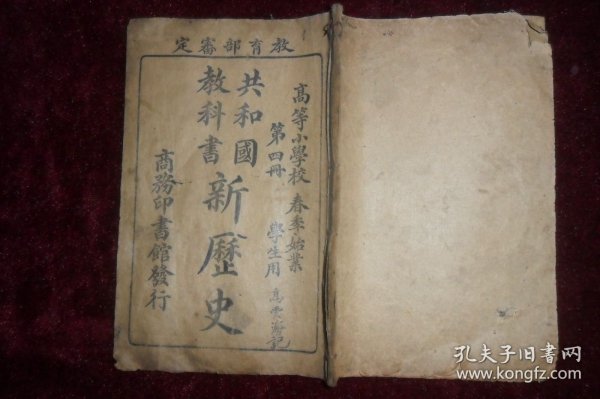 定審部育教
高等小學校 春季始業
第四冊 學生用
共和國
教科書
新歷史
商務印書館發行
孔夫子旧书网
www.kongfz.com